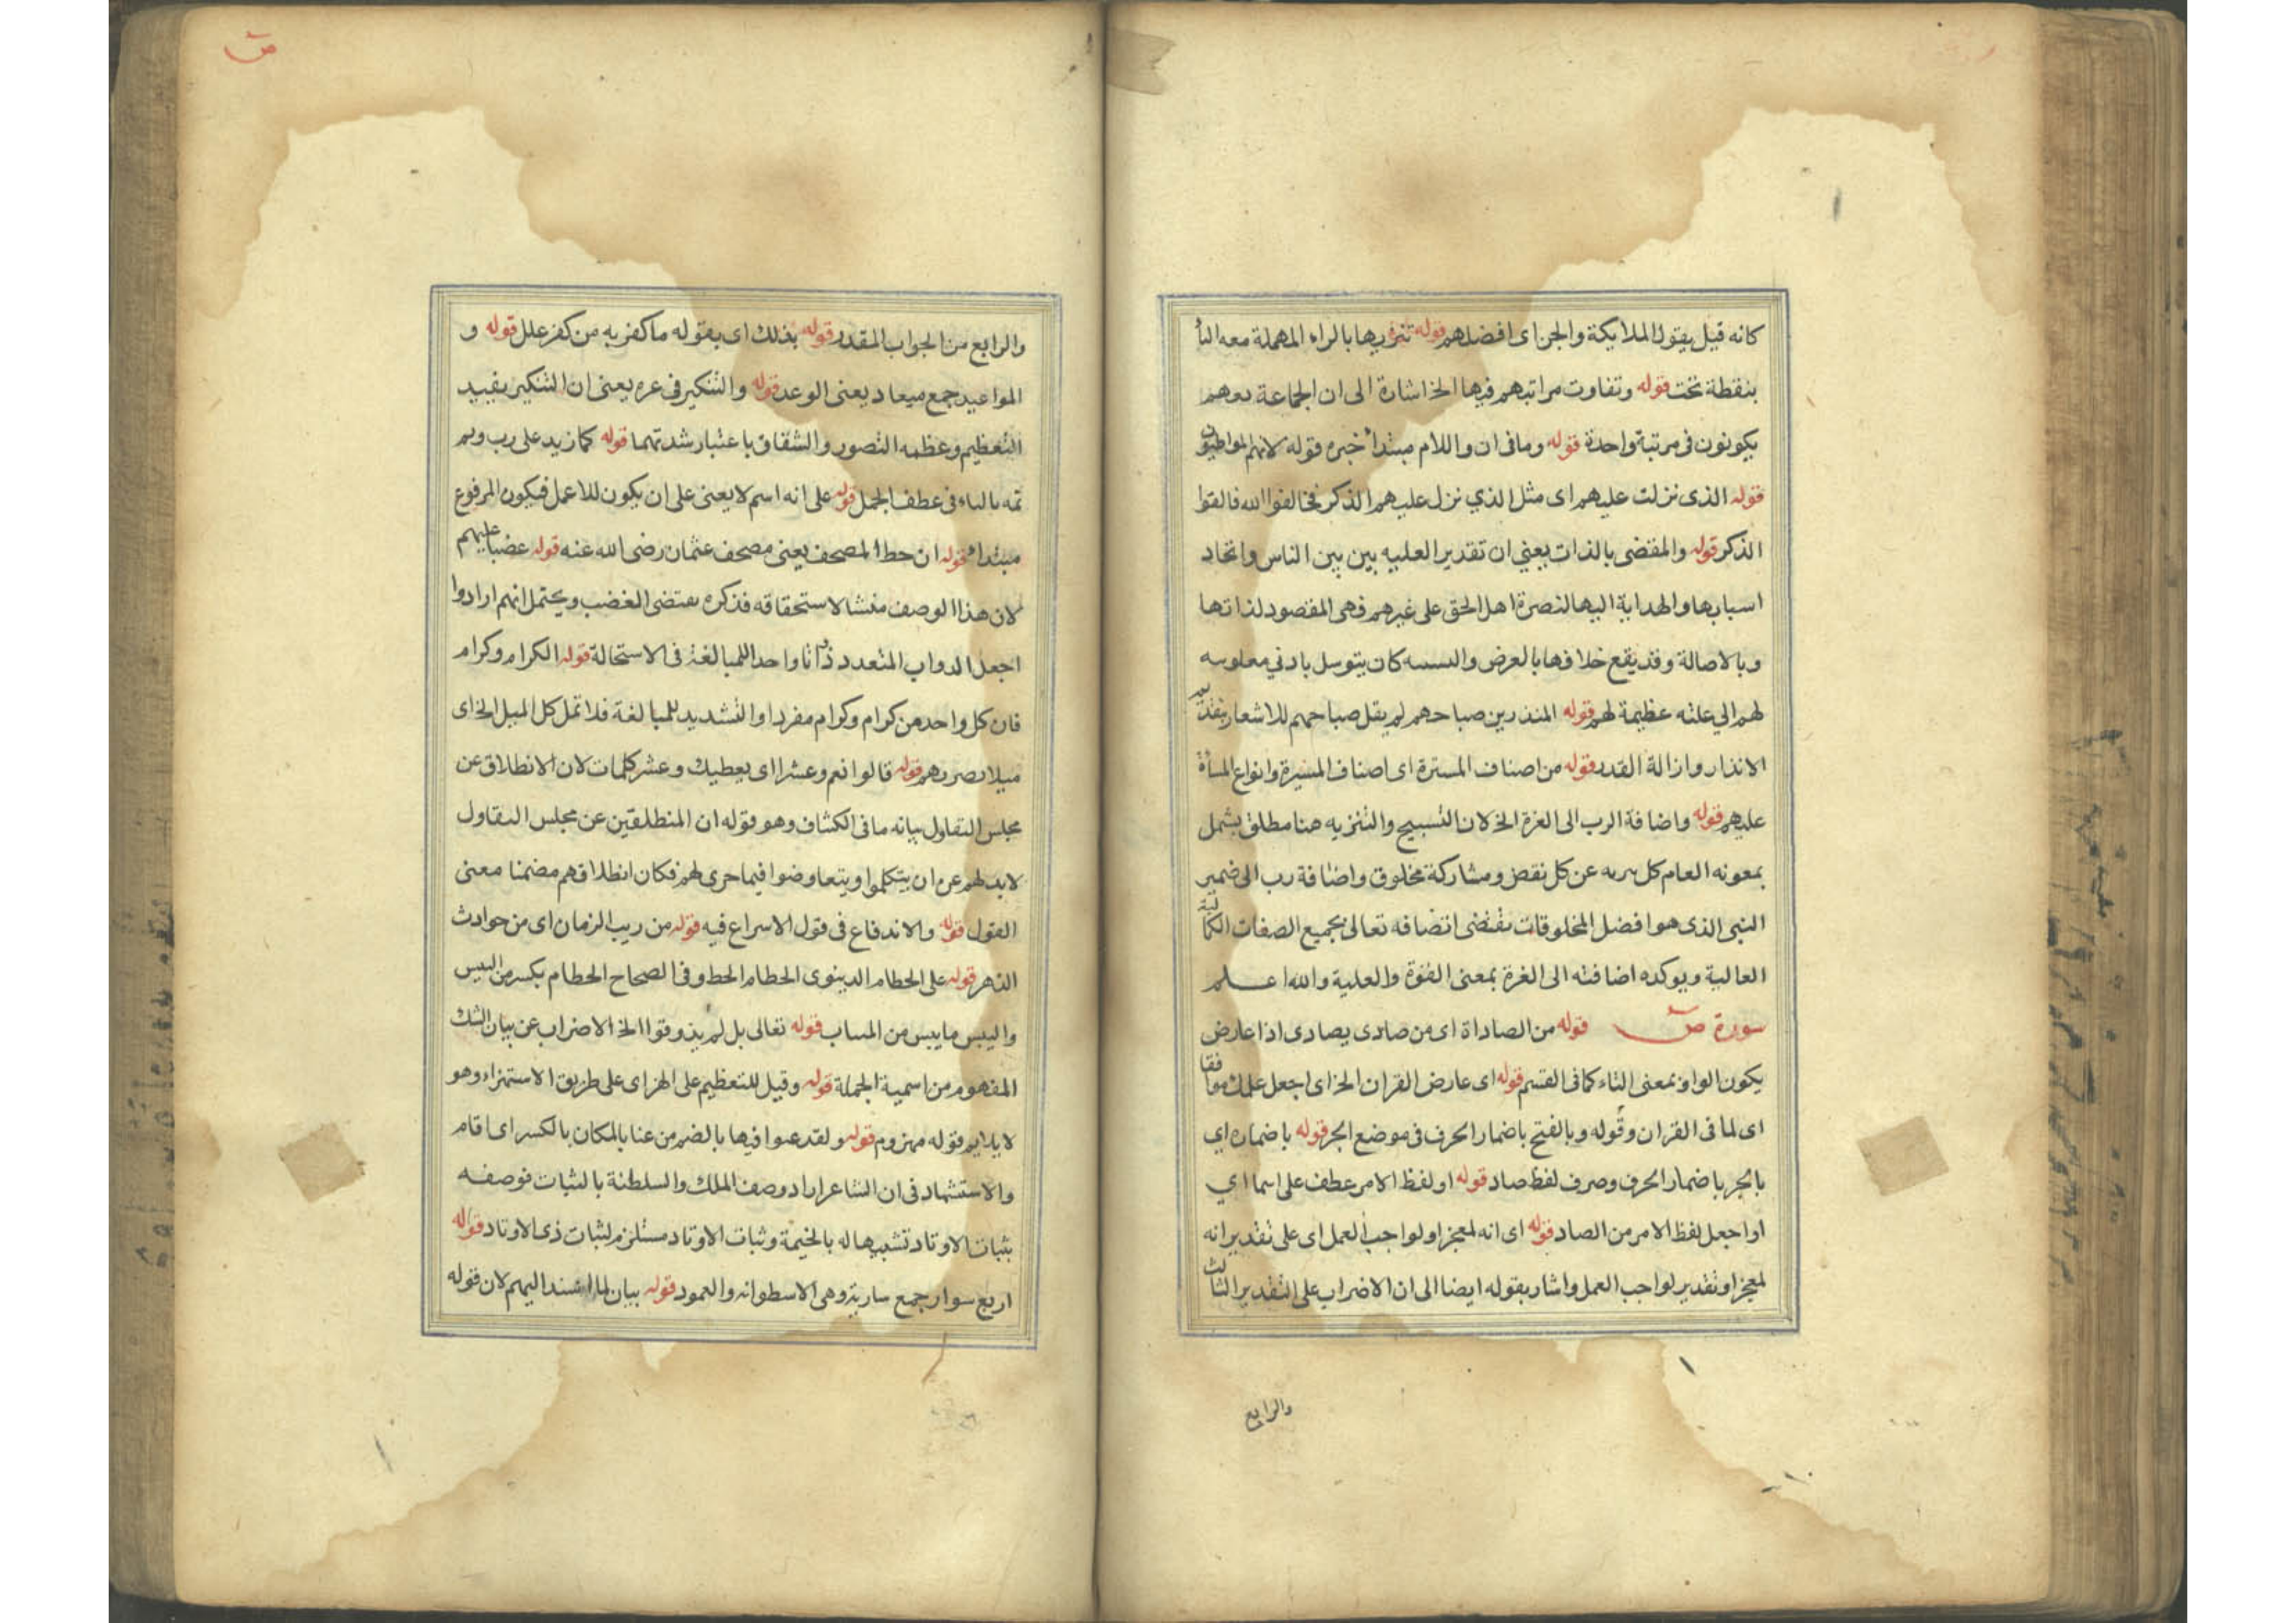 كانه قيل يقول الملايكة والجن اى افضلهم قوله تنزيها بالراء المهملة معه اليا
بنقطة تحت قوله وتفاوت مراتبهم فيها الخ اشارة الى ان الجماعة
يكونون فى مرتبة واحدة قوله وما فى ان واللام مبتدأ خبره قوله لانهم المواظبون
قوله الذى نزلت عليهم اى مثل الذي نزل عليهم الذكر فخالفوا
الذكر قوله والمقضى بالذات يعني ان تقدير الغلبه بين بين الناس واتحاد
اسبابها والهداية اليها لنصرة اهل الحق على غيرهم فهى المقصود لذاتها
وبالاصالة وقد يقع خلافها بالعرض كان يتوسل بادني
لهم الي عظيمة لهم قوله المنذرين صباحهم لم يقل صباحهم للاشعار
الانذار وازالة القدر قوله من اصناف المسترة اى اصناف المسترة وانواع المسأة
عليهم قوله واضافة الرب الى الغزة الخ لان التسبيح والتنزيه هنا مطلق يشمل
بمعونه العام كل عن كل نقص ومشاركة مخلوق واضافة رب الى ضمير
النبى الذى هو افضل المخلوقات يقتضى اتصافه تعالى بجميع الصفات الكمالية
العالية ويوكده اضافته الى الغزة بمعنى القوة والغلبة والله اعلم
سورة ص قوله من الصاداة اى من صادى يصادى اذا عارض
يكون الواو بمعنى التاء كما فى القسم قوله اى عارض القران الخ اى اجعل عملك موافقا
اى لما فى القران وقوله وبالفتح باضمار الحرف فى موضع الجر قوله باضماره اي
بالجر باضمار الحرف وصرف لفظ صاد قوله او لفظ الامر عطف على اسما اي
او اجعل لفظ الامر من الصاد قوله اى انه لمعجز او لواجب العمل اى على تقدير انه
لمعجز او تقدير لواجب العمل واشار بقوله ايضا الى ان الاضراب على التقدير الثالث
والرابع
ص
والرابع من الجواب المقدر قوله بذلك اى بقوله ما كفر به من كفر علل قوله و
المواعيد جمع ميعاد يعنى الوعد قوله والتنكير فى عزه يعنى ان التنكير يفيد
التعظيم وعظمه التصور والشقاق باعتبار شدتهما قوله كما زيد على رب وثم
ثمه بالتاء فى عطف الجمل قوله على انه اسم لا يعنى على ان يكون للا عمل فيكون المرفوع
مبتداء قوله ان خط المصحف يعنى مصحف عثمان رضى الله عنه قوله غضبا عليهم
لان هذا الوصف منشا لاستحقاقه فذكره يقتضى الغضب ويحتمل انهم ارادوا
اجعل الدواب المتعدد ذاتا واحدا للمبالغة فى الاستحالة قوله الكرام وكرام
فان كل واحد من كرام وكرام مفرد او التشديد للمبالغة فلا تمل كل الميل الخ اى
ميلا يضر بهم قوله قالوا نعم وعشرا اى يعطيك وعشر كلمات لان الانطلاق عن
مجلس التقاول بيانه ما فى الكشاف وهو قوله ان المنطلقين عن مجلس التقاول
لابد لهم عن ان يتكلموا ويتفاوضوا فيما جرى لهم فكان انطلاقهم مضمنا معنى
القول قوله والاندفاع فى قول الاسراع فيه قوله من ريب الزمان اى من حوادث
الدهر قوله على الحطام الدينوى الحطام الحط وفى الصحاح الحطام بكسر من اليبس
واليبس ما يبس من النبات قوله تعالى بل لم يذوقوا الخ الاضراب عن بيان الشك
المفهوم من اسمية الجملة قوله وقيل للتعظيم على الهزا اى على طريق الاستهزاء وهو
لا يلايم قوله مهزوم قوله ولقد عنوا فيها بالضم من عنا بالمكان بالكسر اى اقام
والاستشهاد فى ان الشاعر اراد وصف الملك والسلطنة بالثبات فوصفه
بثبات الاوتاد تشبيها له بالخيمة وثبات الاوتاد مستلزم لثبات ذى الاوتاد قوله
اربع سوار جمع سارية وهى الاسطوانه والعمود قوله بيان لما اسند اليهم لان قوله